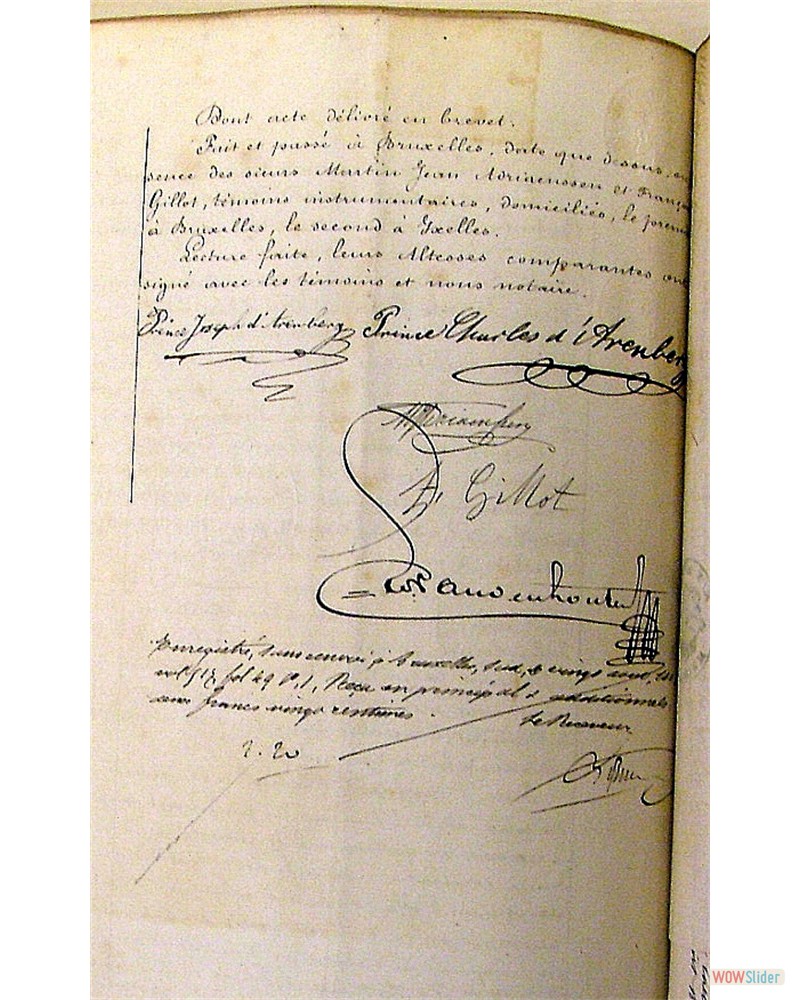 Dont acte délivré en brevet.
Fait et passé à Bruxelles, date que dessus, en
sence des sieurs Martin Jean Adriaenssen et Franço
Gillot, témoins instrumentaires, domiciliés, le premie
à Bruxelles, le second à Ixelles.
Lecture faite, leurs Altesses comparantes ont
signé avec les témoins et nous notaire.
Prince Joseph d'Arenberg Prince Charles d'Arenberg
MJAdriaenssen
F. Gillot
Enregistré, sans renvoi à Bruxelles, sud, le vingt août
vol 517, fol 49 Reçu en principal & additionnels
deux francs vingt centimes. Le Receveur
2.20
WOWSlider